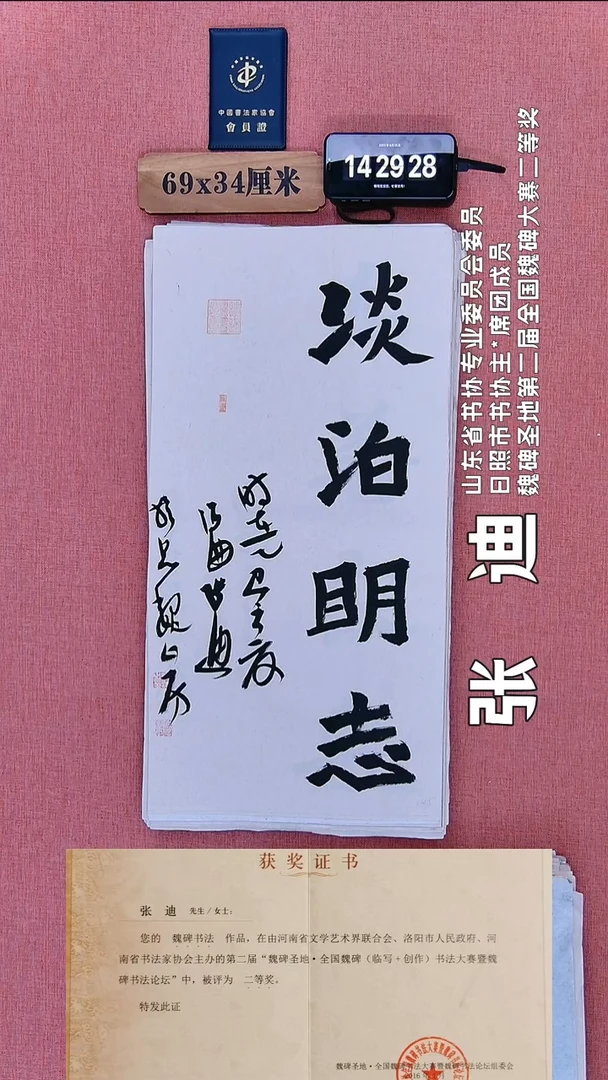 中國書法家協會
會員證
69x34厘米
14 29 28
淡泊明志
山东省书协专业委员会委员
日照市书协主*席团成员
魏碑圣地第二届全国魏碑大赛二等奖
张迪
获奖证书
张 迪 先生/女士:
您的 魏碑书法 作品，在由河南省文学艺术界联合会、洛阳市人民政府、河
南省书法家协会主办的第二届“魏碑圣地·全国魏碑（临写+创作）书法大赛暨魏
碑书法论坛”中，被评为 二等奖。
特发此证
魏碑圣地·全国魏碑书法大赛暨魏碑书法论坛组委会